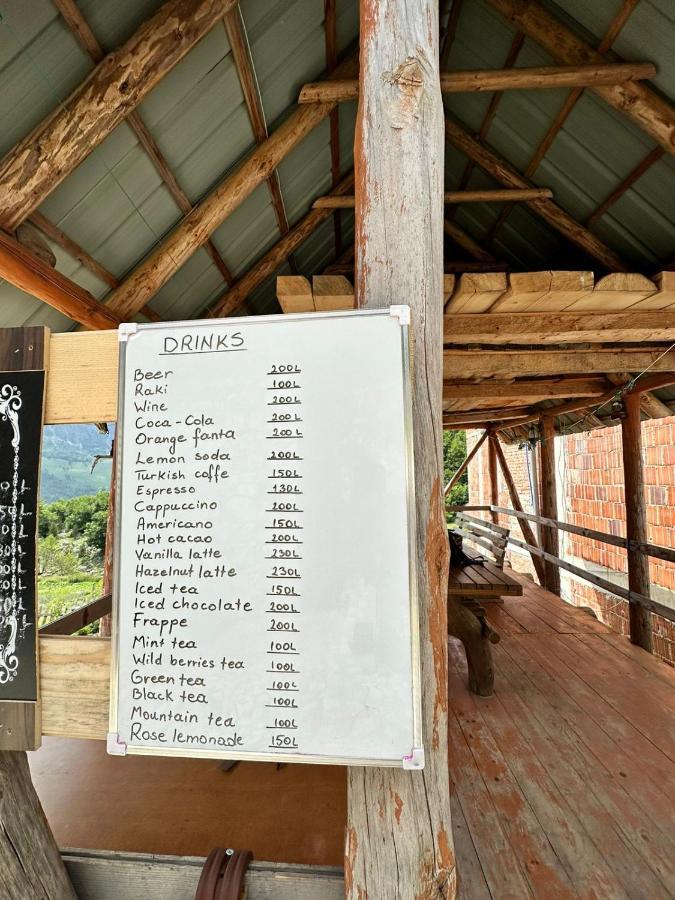 DRINKS
Beer 200L
Raki 100L
Wine 200L
Coca-Cola 200L
Orange fanta 200L
Lemon soda 200L
Turkish coffe 150L
Espresso 130L
Cappuccino 200L
Americano 150L
Hot cacao 200L
Vanilla latte 230L
Hazelnut latte 230L
Iced tea 150L
Iced chocolate 200L
Frappe 200L
Mint tea 100L
Wild berries tea 100L
Green tea 100L
Black tea 100L
Mountain tea 100L
Rose lemonade 150L